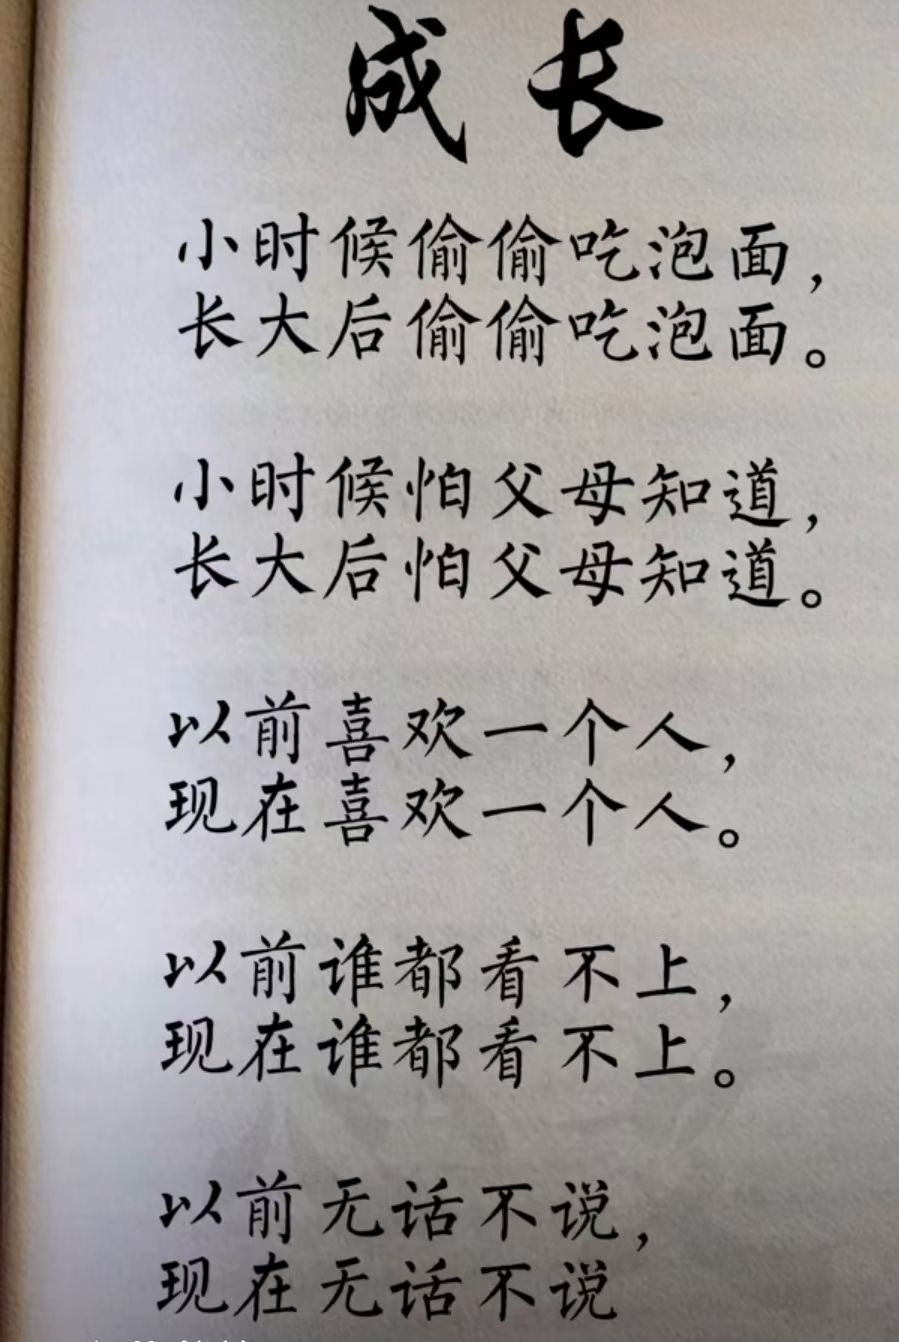 成长
小时候偷偷吃泡面，
长大后偷偷吃泡面。
小时候怕父母知道，
长大后怕父母知道。
以前喜欢一个人，
现在喜欢一个人。
以前谁都看不上，
现在谁都看不上。
以前无话不说，
现在无话不说